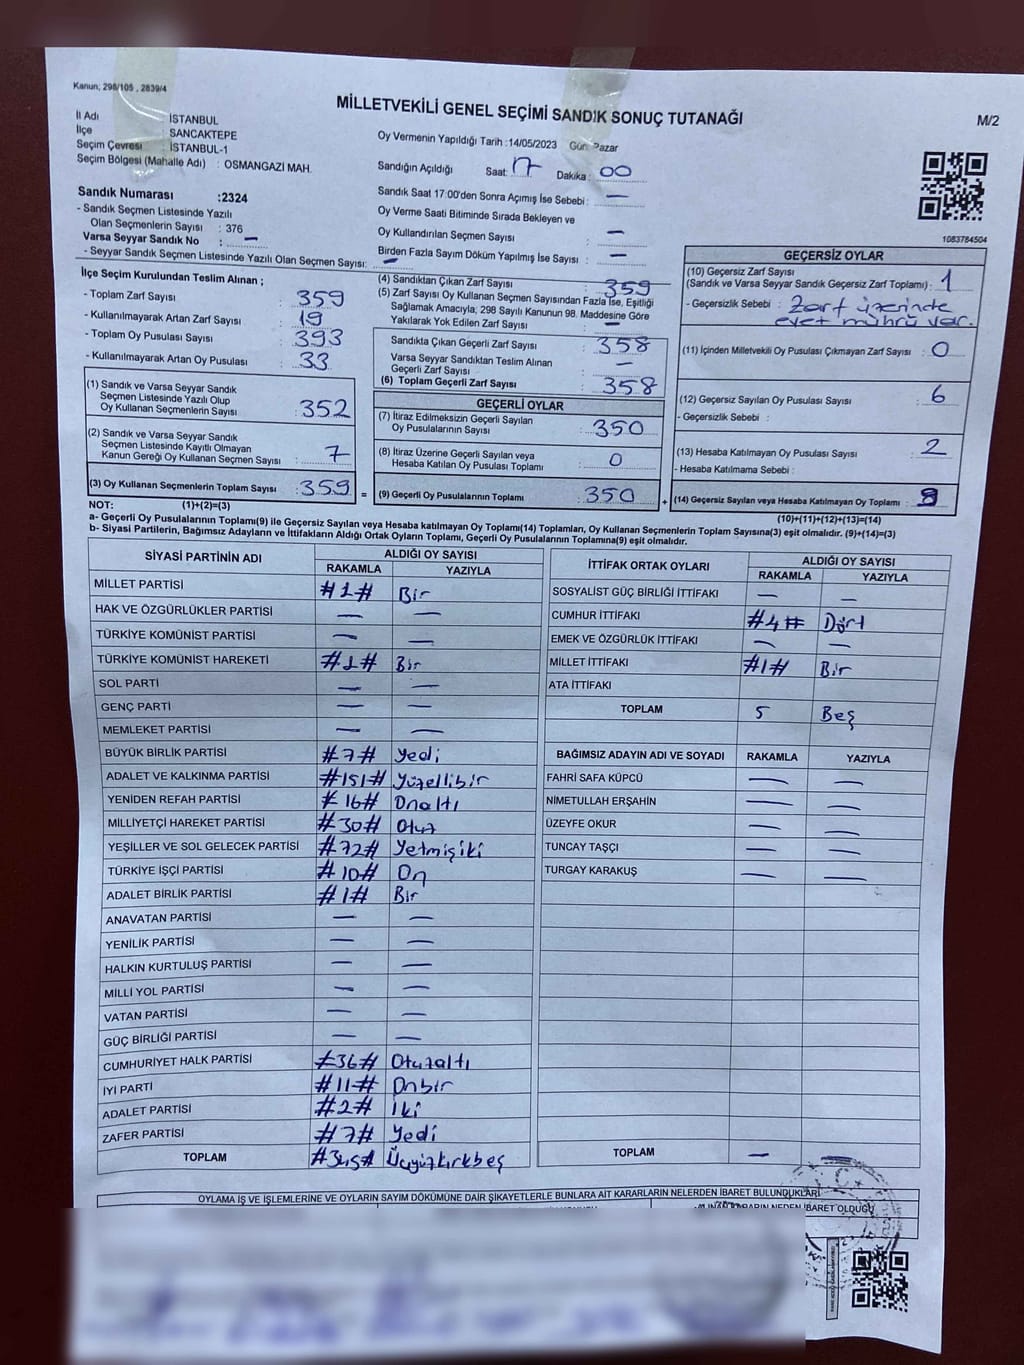 Kanun; 298/105 , 2839/4
MİLLETVEKİLİ GENEL SEÇİMİ SANDIK SONUÇ TUTANAĞI
M/2
İl Adı : İSTANBUL
İlçe : SANCAKTEPE
Seçim Çevresi : İSTANBUL-1
Seçim Bölgesi (Mahalle Adı) : OSMANGAZİ MAH.
Oy Vermenin Yapıldığı Tarih :14/05/2023 Gün: Pazar
Sandığın Açıldığı Saat: 17 Dakika : 00
Sandık Saat 17:00'den Sonra Açımış İse Sebebi : —
Oy Verme Saati Bitiminde Sırada Bekleyen ve
Oy Kullandırılan Seçmen Sayısı : —
Birden Fazla Sayım Döküm Yapılmış İse Sayısı : —
Sandık Numarası :2324
- Sandık Seçmen Listesinde Yazılı
Olan Seçmenlerin Sayısı : 376
Varsa Seyyar Sandık No : —
- Seyyar Sandık Seçmen Listesinde Yazılı Olan Seçmen Sayısı: —
1083784504
İlçe Seçim Kurulundan Teslim Alınan ;
- Toplam Zarf Sayısı : 359
- Kullanılmayarak Artan Zarf Sayısı : 19
- Toplam Oy Pusulası Sayısı : 393
- Kullanılmayarak Artan Oy Pusulası : 33
(1) Sandık ve Varsa Seyyar Sandık
Seçmen Listesinde Yazılı Olup
Oy Kullanan Seçmenlerin Sayısı : 352
(2) Sandık ve Varsa Seyyar Sandık
Seçmen Listesinde Kayıtlı Olmayan
Kanun Gereği Oy Kullanan Seçmen Sayısı : 7
(3) Oy Kullanan Seçmenlerin Toplam Sayısı : 359 =
(4) Sandıktan Çıkan Zarf Sayısı : 359
(5) Zarf Sayısı Oy Kullanan Seçmen Sayısından Fazla İse, Eşitliği
Sağlamak Amacıyla; 298 Sayılı Kanunun 98. Maddesine Göre
Yakılarak Yok Edilen Zarf Sayısı : —
Sandıkta Çıkan Geçerli Zarf Sayısı : 358
Varsa Seyyar Sandıktan Teslim Alınan
Geçerli Zarf Sayısı : —
(6) Toplam Geçerli Zarf Sayısı : 358
GEÇERLİ OYLAR
(7) İtiraz Edilmeksizin Geçerli Sayılan
Oy Pusulalarının Sayısı : 350
(8) İtiraz Üzerine Geçerli Sayılan veya
Hesaba Katılan Oy Pusulası Toplamı : 0
(9) Geçerli Oy Pusulalarının Toplamı : 350 +
GEÇERSİZ OYLAR
(10) Geçersiz Zarf Sayısı
(Sandık ve Varsa Seyyar Sandık Geçersiz Zarf Toplamı) : 1
- Geçersizlik Sebebi : Zarf üzerinde
evet mührü var.
(11) İçinden Milletvekili Oy Pusulası Çıkmayan Zarf Sayısı : 0
(12) Geçersiz Sayılan Oy Pusulası Sayısı : 6
- Geçersizlik Sebebi :
(13) Hesaba Katılmayan Oy Pusulası Sayısı : 2
- Hesaba Katılmama Sebebi :
(14) Geçersiz Sayılan veya Hesaba Katılmayan Oy Toplamı :
NOT: (1)+(2)=(3)
(10)+(11)+(12)+(13)=(14)
a- Geçerli Oy Pusulalarının Toplamı(9) ile Geçersiz Sayılan veya Hesaba katılmayan Oy Toplamı(14) Toplamları, Oy Kullanan Seçmenlerin Toplam Sayısına(3) eşit olmalıdır. (9)+(14)=(3)
b- Siyasi Partilerin, Bağımsız Adayların ve İttifakların Aldığı Ortak Oyların Toplamı, Geçerli Oy Pusulalarının Toplamına(9) eşit olmalıdır.
SİYASİ PARTİNİN ADI ALDIĞI OY SAYISI
RAKAMLA YAZIYLA
MİLLET PARTİSİ #1# Bir
HAK VE ÖZGÜRLÜKLER PARTİSİ — —
TÜRKİYE KOMÜNİST PARTİSİ — —
TÜRKİYE KOMÜNİST HAREKETİ #1# Bir
SOL PARTİ — —
GENÇ PARTİ — —
MEMLEKET PARTİSİ — —
BÜYÜK BİRLİK PARTİSİ #7# Yedi
ADALET VE KALKINMA PARTİSİ #151# Yüzellibir
YENİDEN REFAH PARTİSİ #16# Onaltı
MİLLİYETÇİ HAREKET PARTİSİ #30# Otuz
YEŞİLLER VE SOL GELECEK PARTİSİ #72# Yetmişiki
TÜRKİYE İŞÇİ PARTİSİ #10# On
ADALET BİRLİK PARTİSİ #1# Bir
ANAVATAN PARTİSİ — —
YENİLİK PARTİSİ — —
HALKIN KURTULUŞ PARTİSİ — —
MİLLİ YOL PARTİSİ — —
VATAN PARTİSİ — —
GÜÇ BİRLİĞİ PARTİSİ — —
CUMHURİYET HALK PARTİSİ #36# Otuzaltı
İYİ PARTİ #11# Onbir
ADALET PARTİSİ #2# İki
ZAFER PARTİSİ #7# Yedi
TOPLAM #345# Üçyüzkırkbeş
İTTİFAK ORTAK OYLARI ALDIĞI OY SAYISI
RAKAMLA YAZIYLA
SOSYALİST GÜÇ BİRLİĞİ İTTİFAKI — —
CUMHUR İTTİFAKI #4# Dört
EMEK VE ÖZGÜRLÜK İTTİFAKI — —
MİLLET İTTİFAKI #1# Bir
ATA İTTİFAKI
TOPLAM 5 Beş
BAĞIMSIZ ADAYIN ADI VE SOYADI RAKAMLA YAZIYLA
FAHRİ SAFA KÜPCÜ — —
NİMETULLAH ERŞAHİN — —
ÜZEYFE OKUR — —
TUNCAY TAŞÇI — —
TURGAY KARAKUŞ — —
TOPLAM —
OYLAMA İŞ VE İŞLEMLERİNE VE OYLARIN SAYIM DÖKÜMÜNE DAİR ŞİKAYETLERLE BUNLARA AİT KARARLARIN NELERDEN İBARET BULUNDUKLARI
KARARIN NEDEN İBARET OLDUĞU